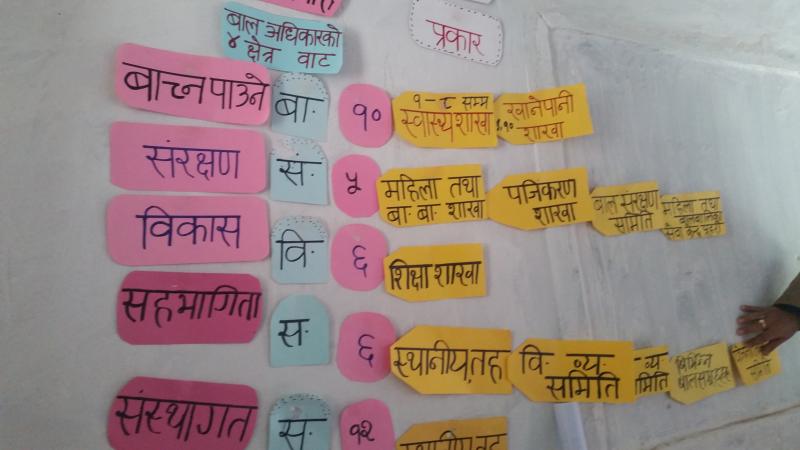 बाल अधिकारको
४ क्षेत्र वाट
प्रकार
बाच्न पाउने
बा.
१०
१-८ सम्म
स्वास्थ्य शाखा
९,१०
खानेपानी
शाखा
संरक्षण
सं.
५
महिला तथा
बा. बा. शाखा
पंजिकरण
शाखा
बाल संरक्षण
समिति
महिला तथा
बालबालिका
सेवा केन्द्र
विकास
वि.
६
शिक्षा शाखा
सहभागिता
स.
६
स्थानीय तह
वि. व्य.
समिति
व्य.
मिति
विभिन्न
संस्थागत
स.
१२
स्थानीय तह